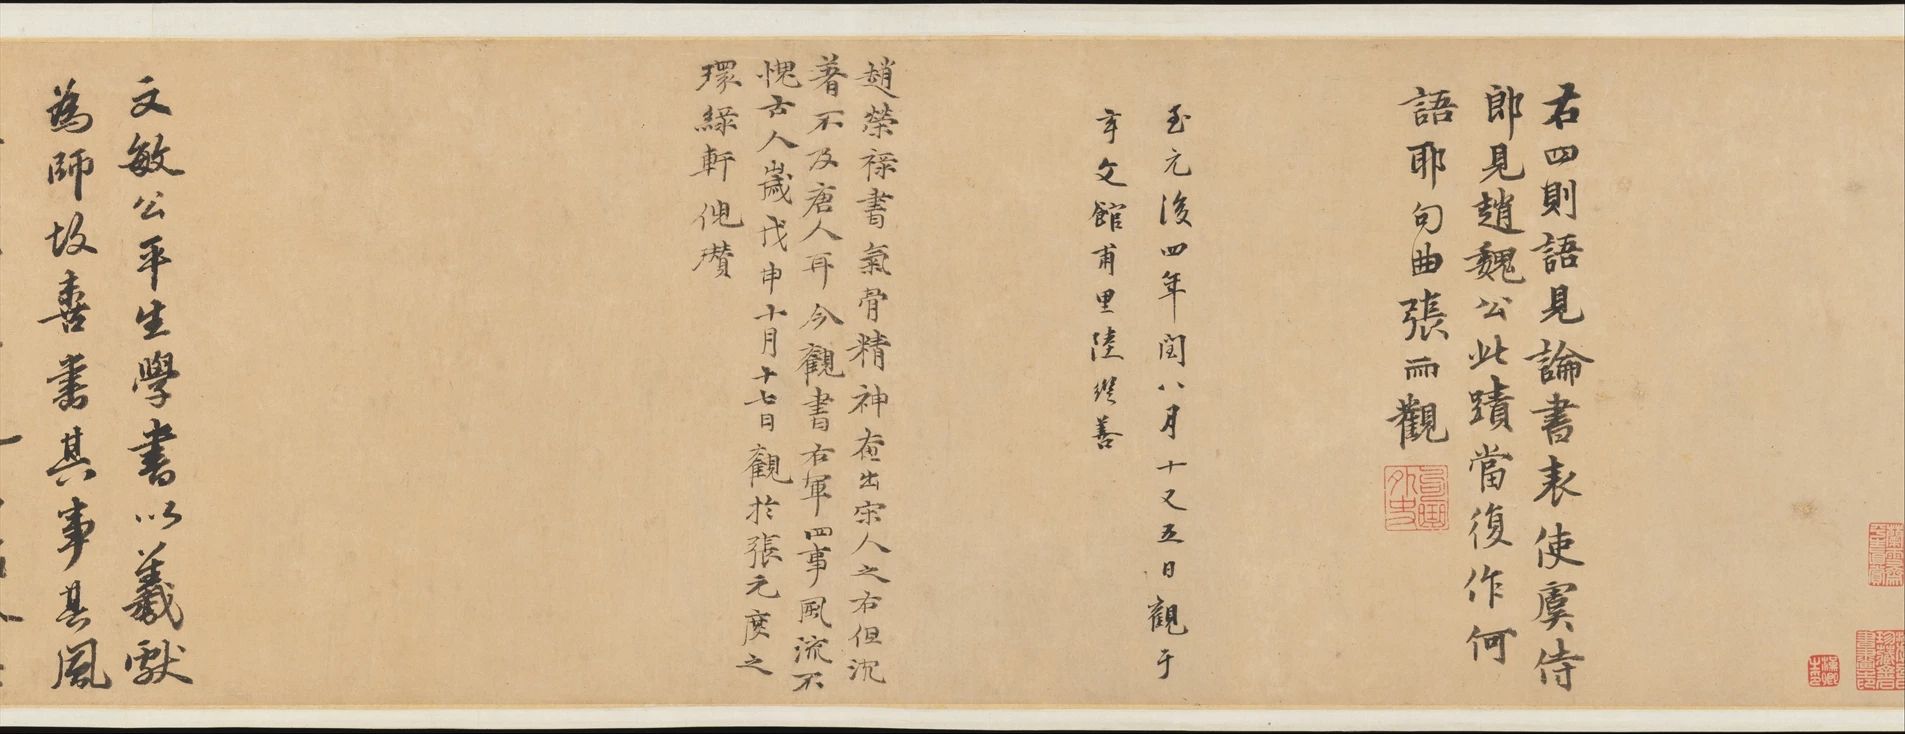 右四則語見論書表使虞侍
郎見趙魏公此蹟當復作何
語耶句曲張雨觀
至元後四年閏八月十又五日觀于
宇文館甫里陸繼善
趙榮祿書氣骨精神在出宋人之右但沉
著不及唐人耳今觀書右軍四事風流不
愧古人歲戊申十月十七日觀於張元度之
環綠軒倪瓚
文敏公平生學書以羲獻
為師故喜書其事其風